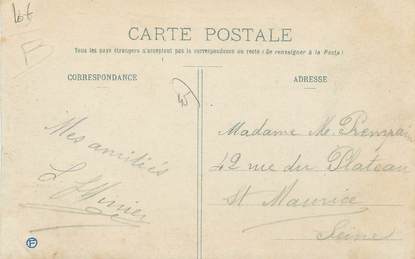 lot
CARTE POSTALE
Tous les pays étrangers n'acceptent pas la correspondance au recto (Se renseigner à la Poste)
CORRESPONDANCE
ADRESSE
Mes amitiés
Madame M.
42 rue du Plateau
St Maurice
Seine